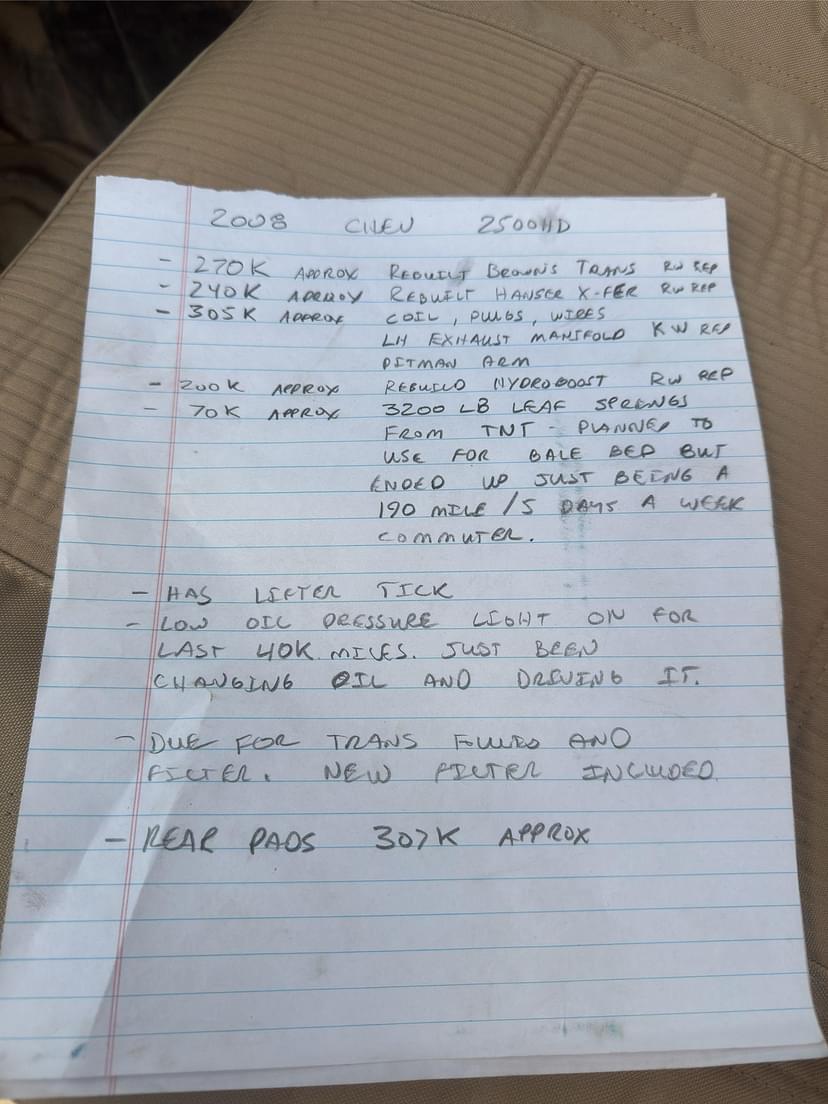 2008 CHEV 2500HD
- 270K APPROX REBUILT BROWNS TRANS RW REP
- 240K APPROX REBUILT HANSER X-FER RW REP
- 305K APPROX COIL, PLUGS, WIRES
LH EXHAUST MANIFOLD RW REP
PITMAN ARM
- 200K APPROX REBUILD HYDROBOOST RW REP
- 70K APPROX 3200 LB LEAF SPRINGS
FROM TNT - PLANNED TO
USE FOR BALE BED BUT
ENDED UP JUST BEING A
190 MILE /5 DAYS A WEEK
COMMUTER.
- HAS LIFTER TICK
- LOW OIL PRESSURE LIGHT ON FOR
LAST 40K MILES. JUST BEEN
CHANGING OIL AND DRIVING IT.
- DUE FOR TRANS FLUID AND
FILTER. NEW FILTER INCLUDED.
- REAR PADS 307K APPROX